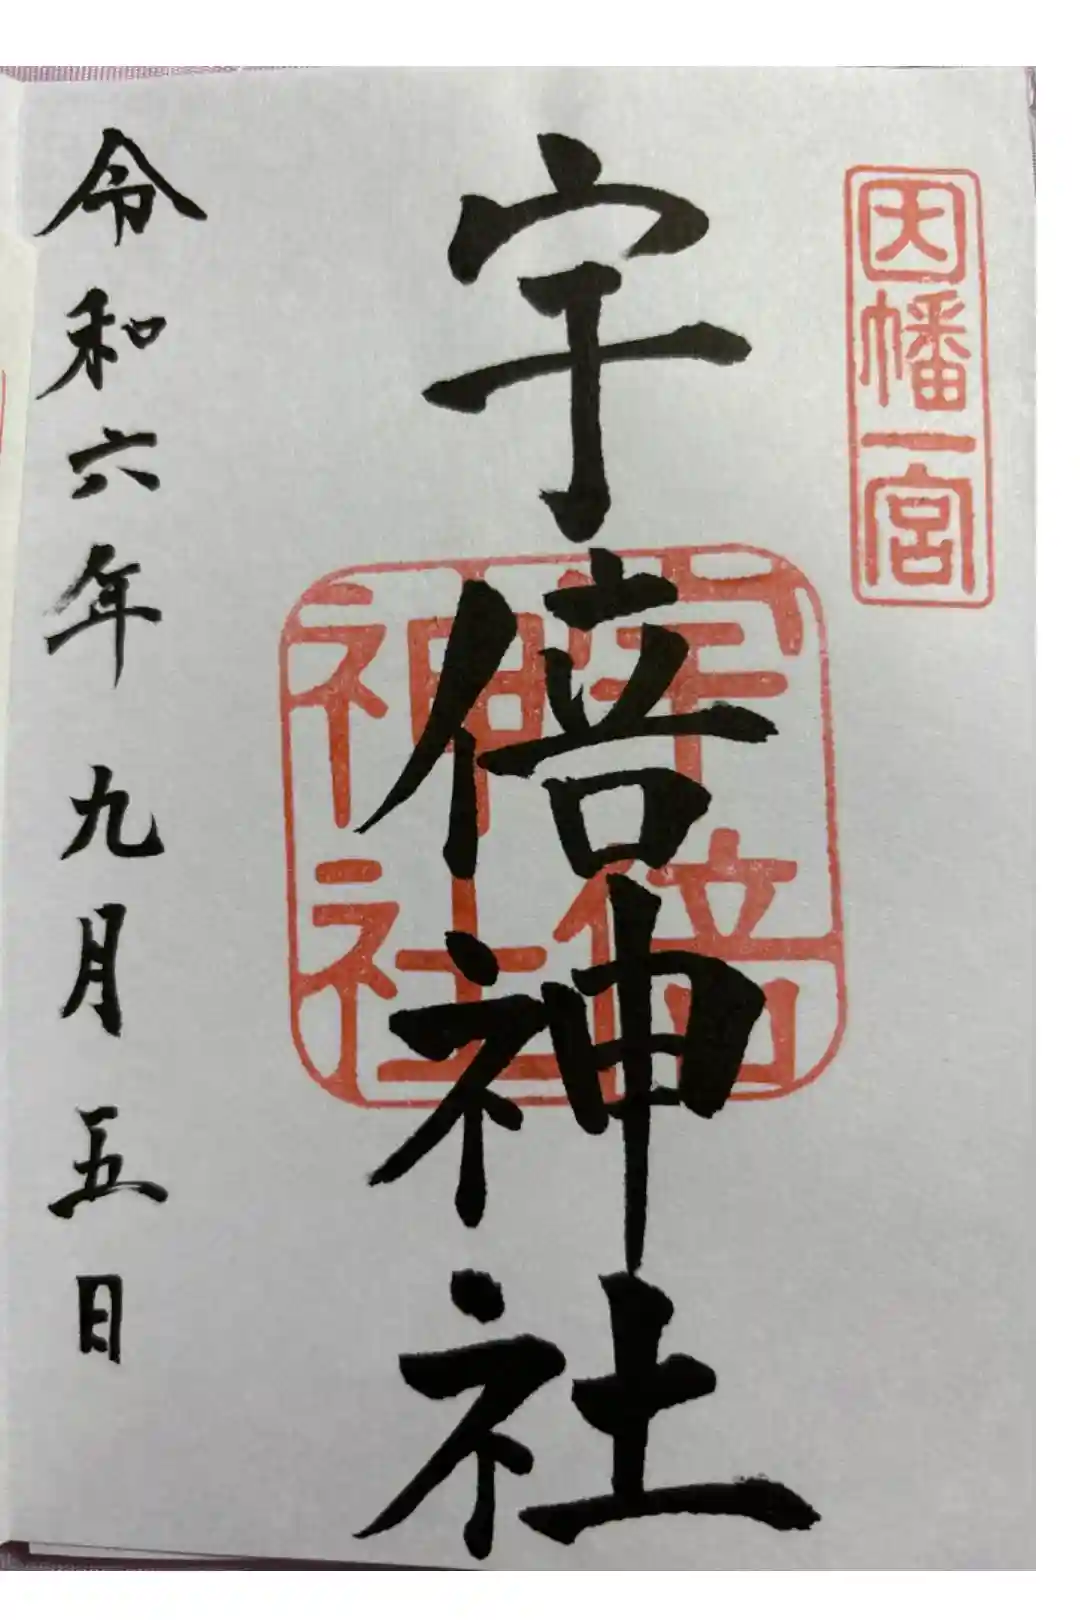 因幡一宮
宇倍神社
宇倍
神社
令和六年九月五日